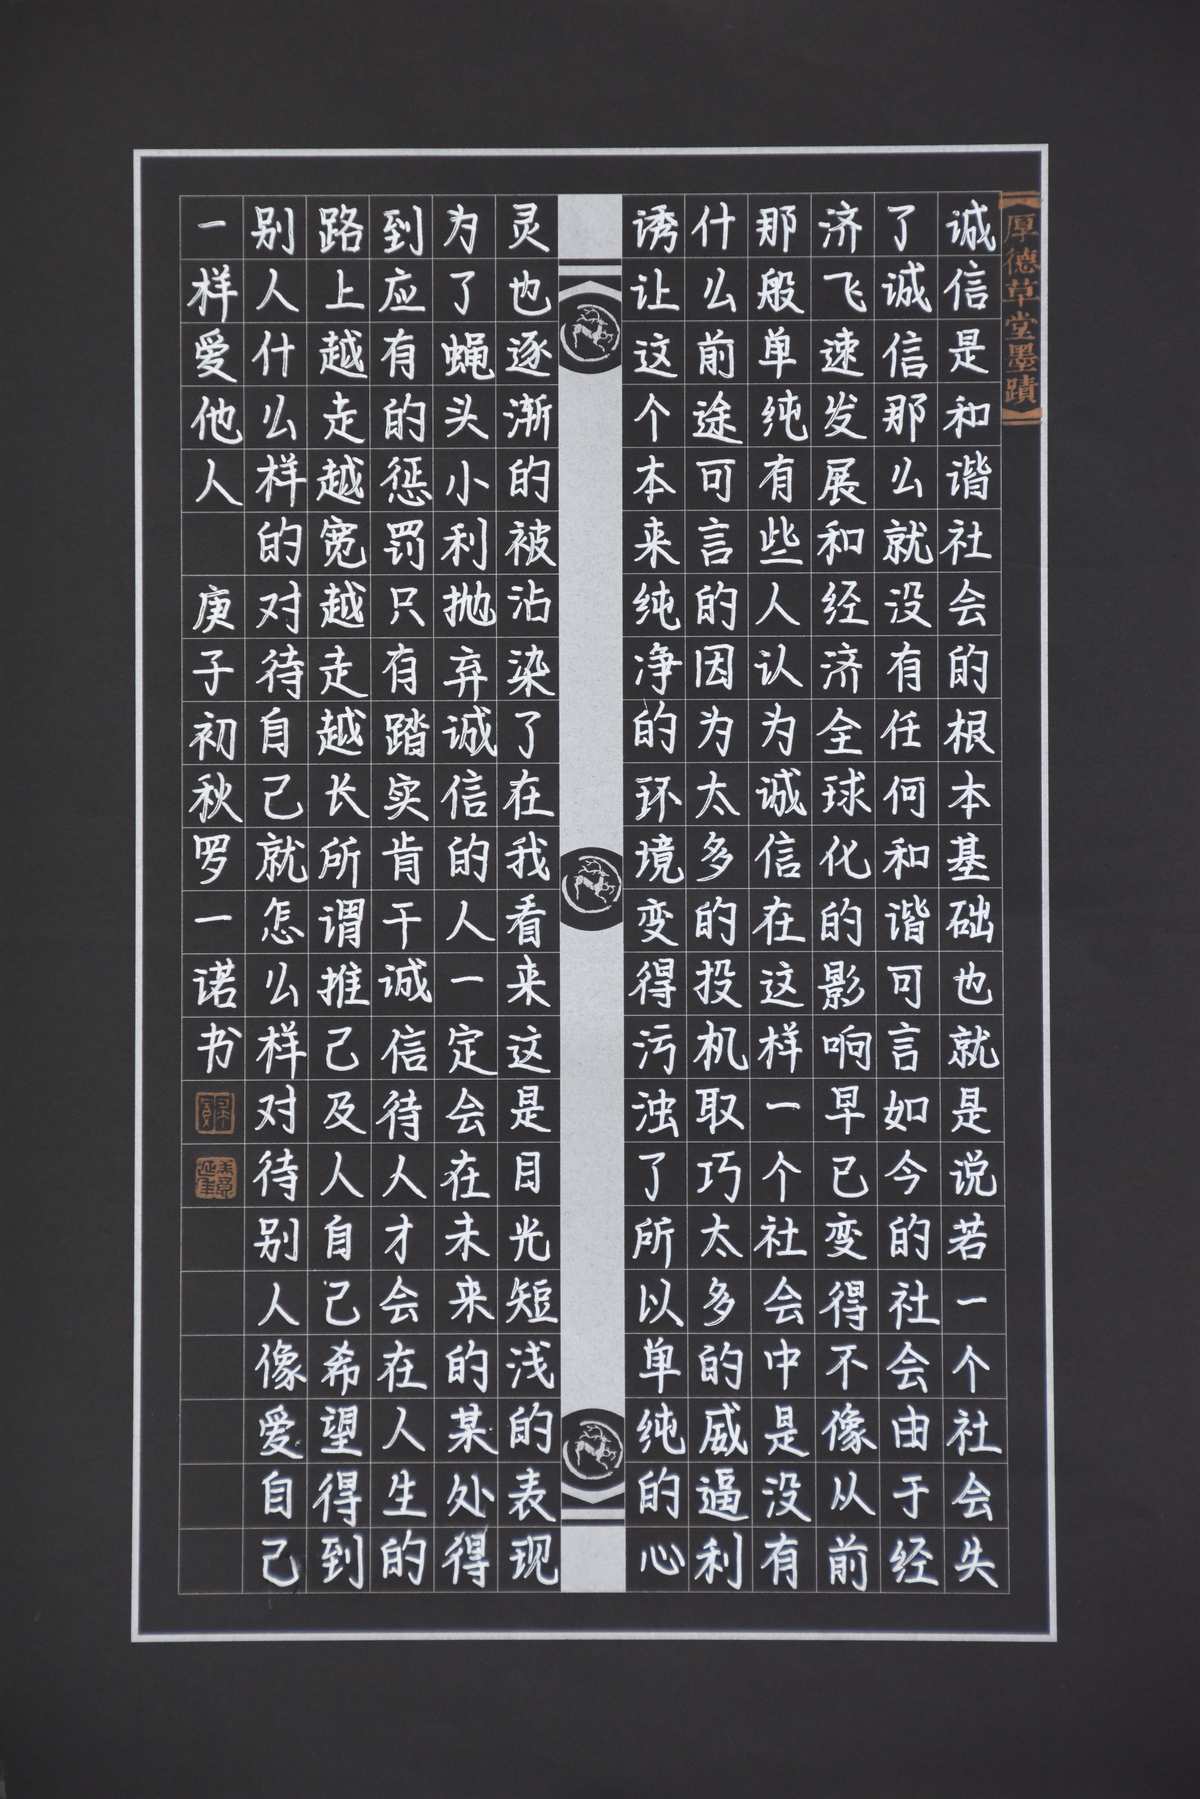 厚德草堂墨蹟
诚信是和谐社会的根本基础也就是说若一个社会失
了诚信那么就没有任何和谐可言如今的社会由于经
济飞速发展和经济全球化的影响早已变得不像从前
那般单纯有些人认为诚信在这样一个社会中是没有
什么前途可言的因为太多的投机取巧太多的威逼利
诱让这个本来纯净的环境变得污浊了所以单纯的心
灵也逐渐的被沾染了在我看来这是目光短浅的表现
为了蝇头小利抛弃诚信的人一定会在未来的某处得
到应有的惩罚只有踏实肯干诚信待人才会在人生的
路上越走越宽越走越长所谓推己及人自己希望得到
别人什么样的对待自己就怎么样对待别人像爱自己
一样爱他人 庚子初秋罗一诺书